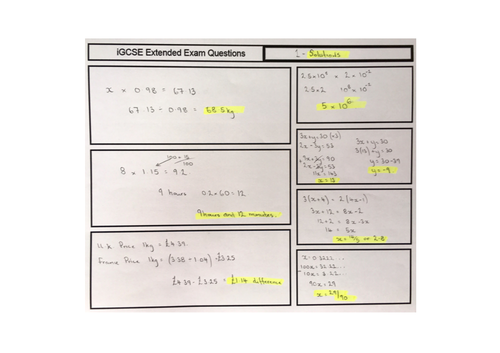 iGCSE Extended Exam Questions
1 - Solutions
x x 0.98 = 67.13
67.13 ÷ 0.98 = 68.5kg
100 + 15
100
8 x 1.15 = 9.2
9 hours 0.2 x 60 = 12
9 hours and 12 minutes.
U.K. Price 1kg = £4.39
France Price 1kg = (3.38 ÷ 1.04) = £3.25
£4.39 - £3.25 = £1.14 difference
2 x 10
2.5 x 2
5 x 10
3x + y = 30 (x3)
2x - 3y = 53
11x = 143
x = 13
3x + y = 30
3(13) + y = 30
y = 30 - 39
y = -9
3(x+4) = 2(4x-1)
3x + 12 = 8x - 2
12 + 2 = 8x - 3x
14 = 5x
x = 14/5 or 2.8
x = 0.3222...
100x = 32.22...
10x = 3.22...
90x = 29
x = 29/90